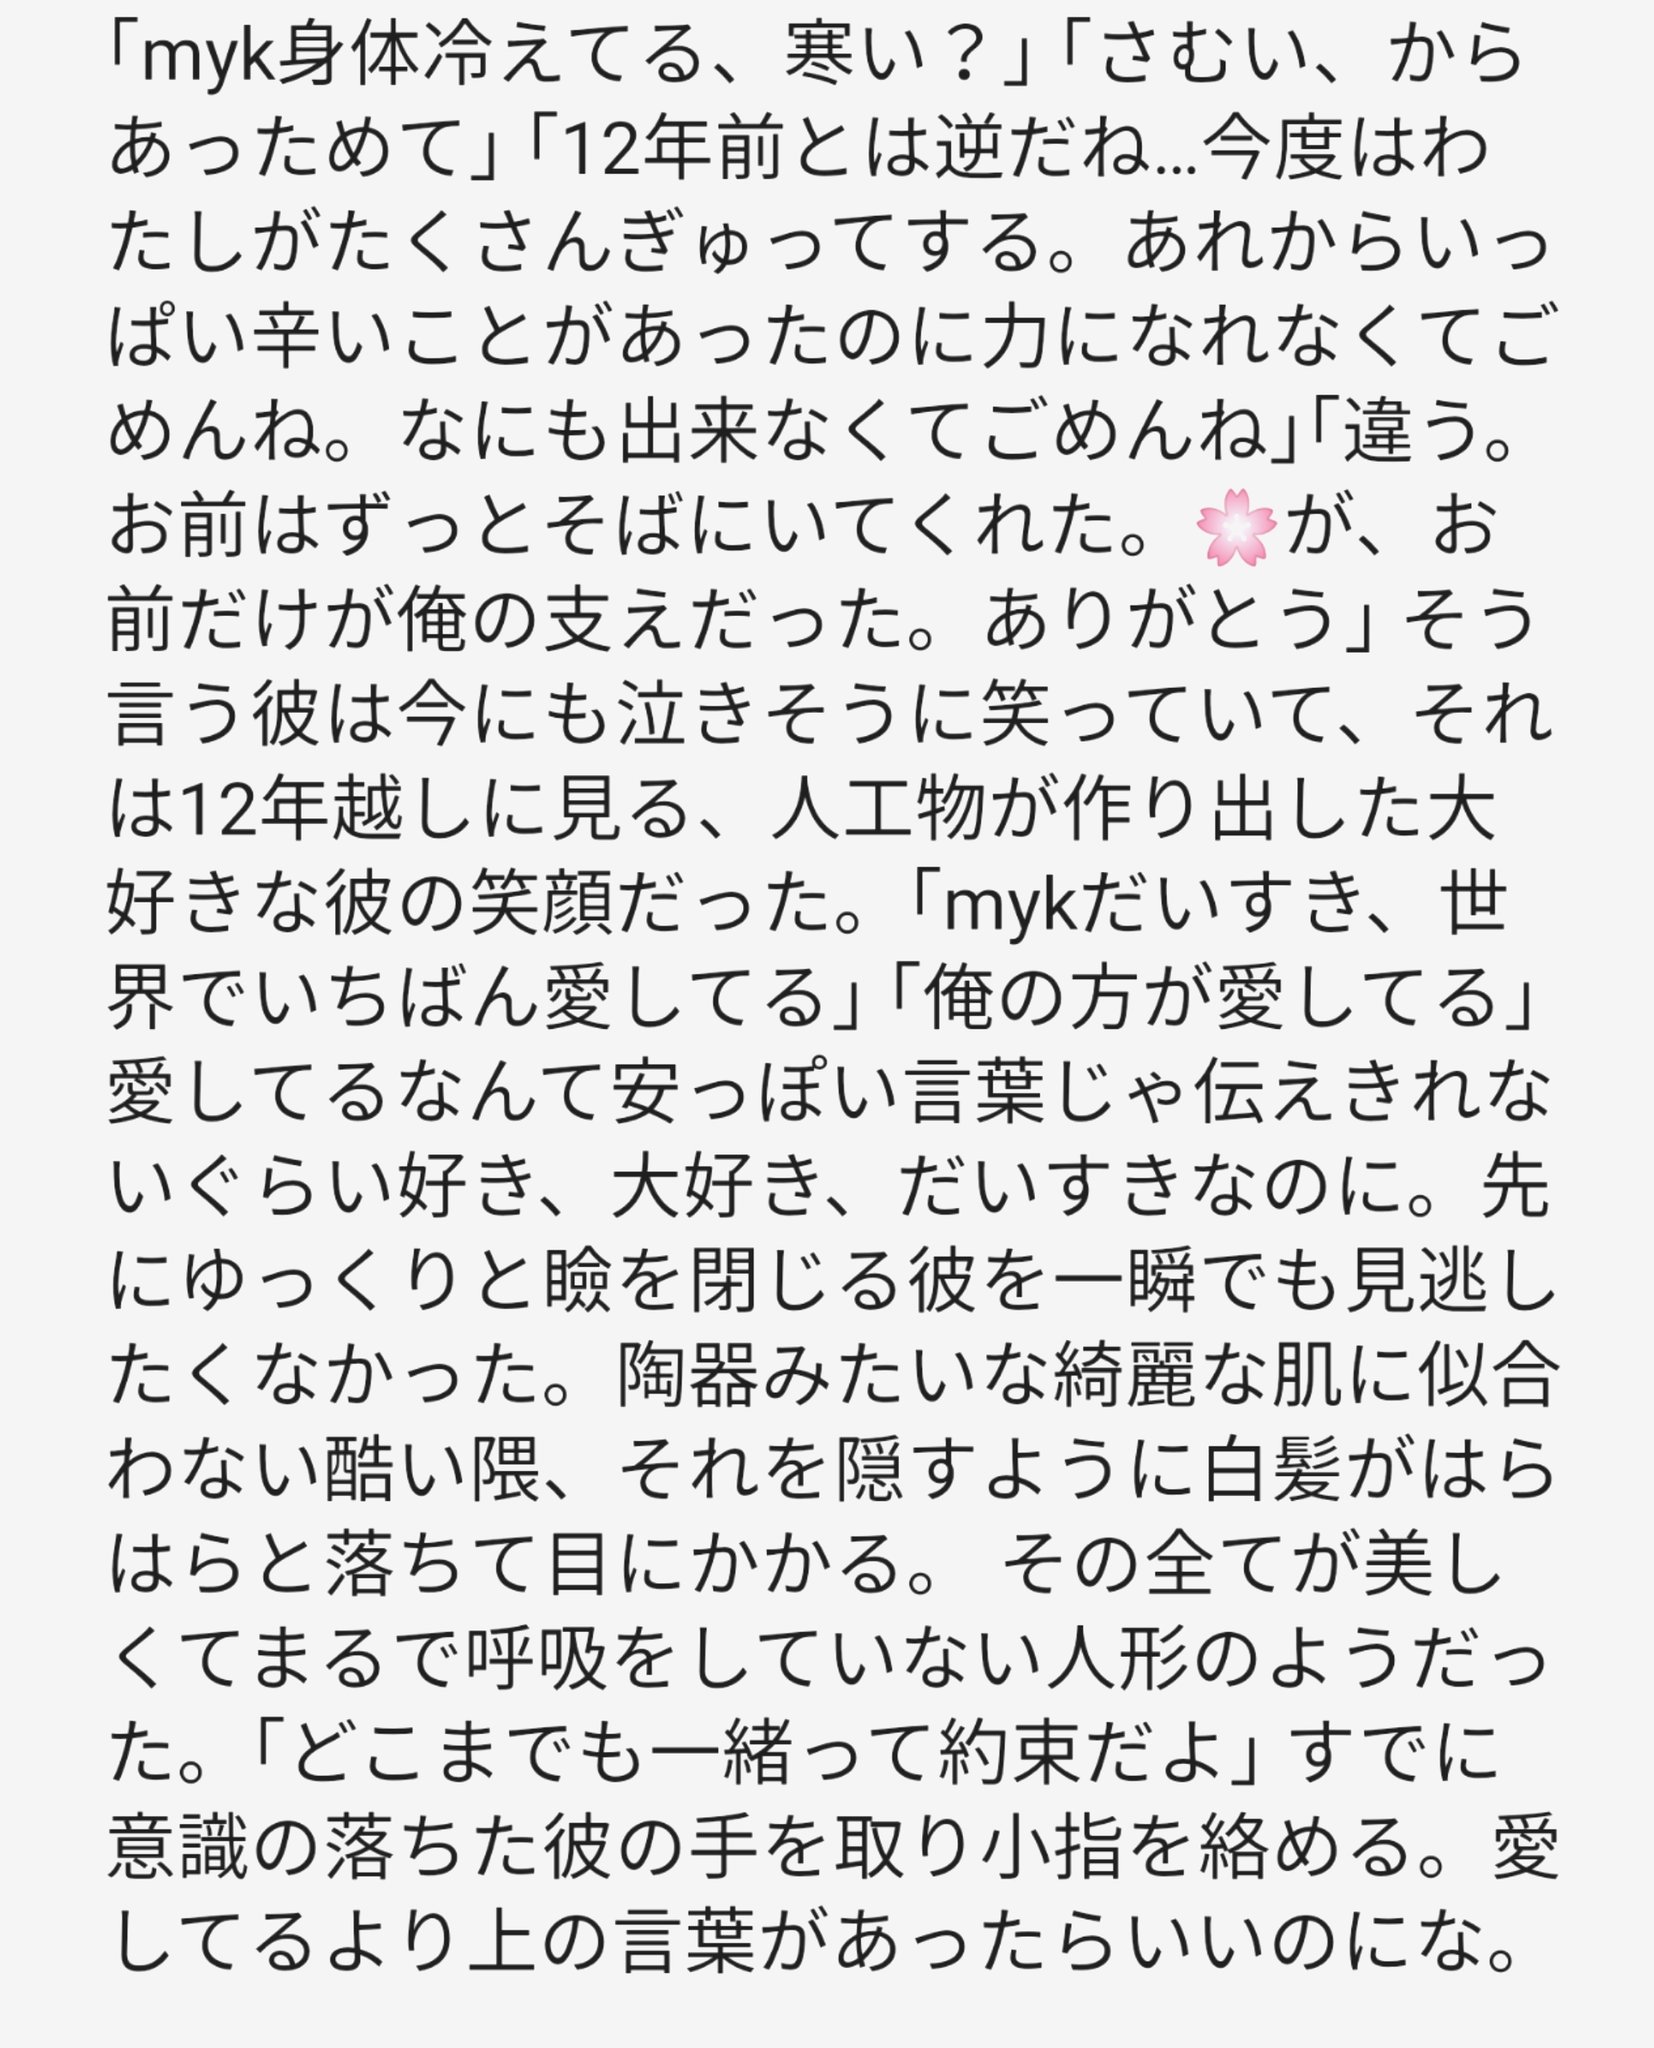 「myk身体冷えてる、寒い？」「さむい、から
あっためて」「12年前とは逆だね…今度はわ
たしがたくさんぎゅってする。あれからいっ
ぱい辛いことがあったのに力になれなくてご
めんね。なにも出来なくてごめんね」「違う。
お前はずっとそばにいてくれた。🌸が、お
前だけが俺の支えだった。ありがとう」そう
言う彼は今にも泣きそうに笑っていて、それ
は12年越しに見る、人工物が作り出した大
好きな彼の笑顔だった。「mykだいすき、世
界でいちばん愛してる」「俺の方が愛してる」
愛してるなんて安っぽい言葉じゃ伝えきれな
いぐらい好き、大好き、だいすきなのに。先
にゆっくりと瞼を閉じる彼を一瞬でも見逃し
たくなかった。陶器みたいな綺麗な肌に似合
わない酷い隈、それを隠すように白髪がはら
はらと落ちて目にかかる。 その全てが美し
くてまるで呼吸をしていない人形のようだっ
た。「どこまでも一緒って約束だよ」すでに
意識の落ちた彼の手を取り小指を絡める。愛
してるより上の言葉があったらいいのにな。